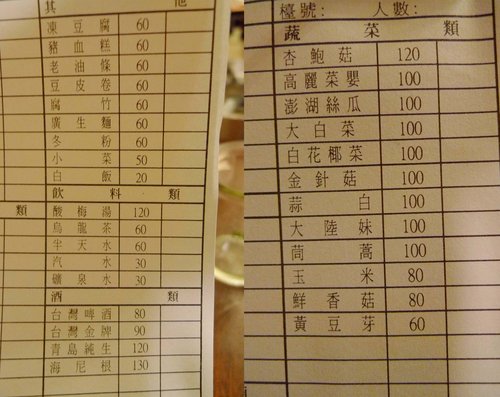 其 他
凍豆腐 60
豬血糕 60
老油條 60
豆皮卷 60
腐竹 60
廣生麵 60
冬粉 60
小菜 50
白飯 20
飲料類
類 酸梅湯 120
烏龍茶 60
半天水 60
汽水 30
礦泉水 30
酒 類
台灣啤酒 80
台灣金牌 90
青島純生 120
海尼根 130
檯號: 人數:
蔬菜類
杏鮑菇 120
高麗菜嬰 100
澎湖絲瓜 100
大白菜 100
白花椰菜 100
金針菇 100
蒜白 100
大陸妹 100
茼蒿 100
玉米 80
鮮香菇 80
黃豆芽 60